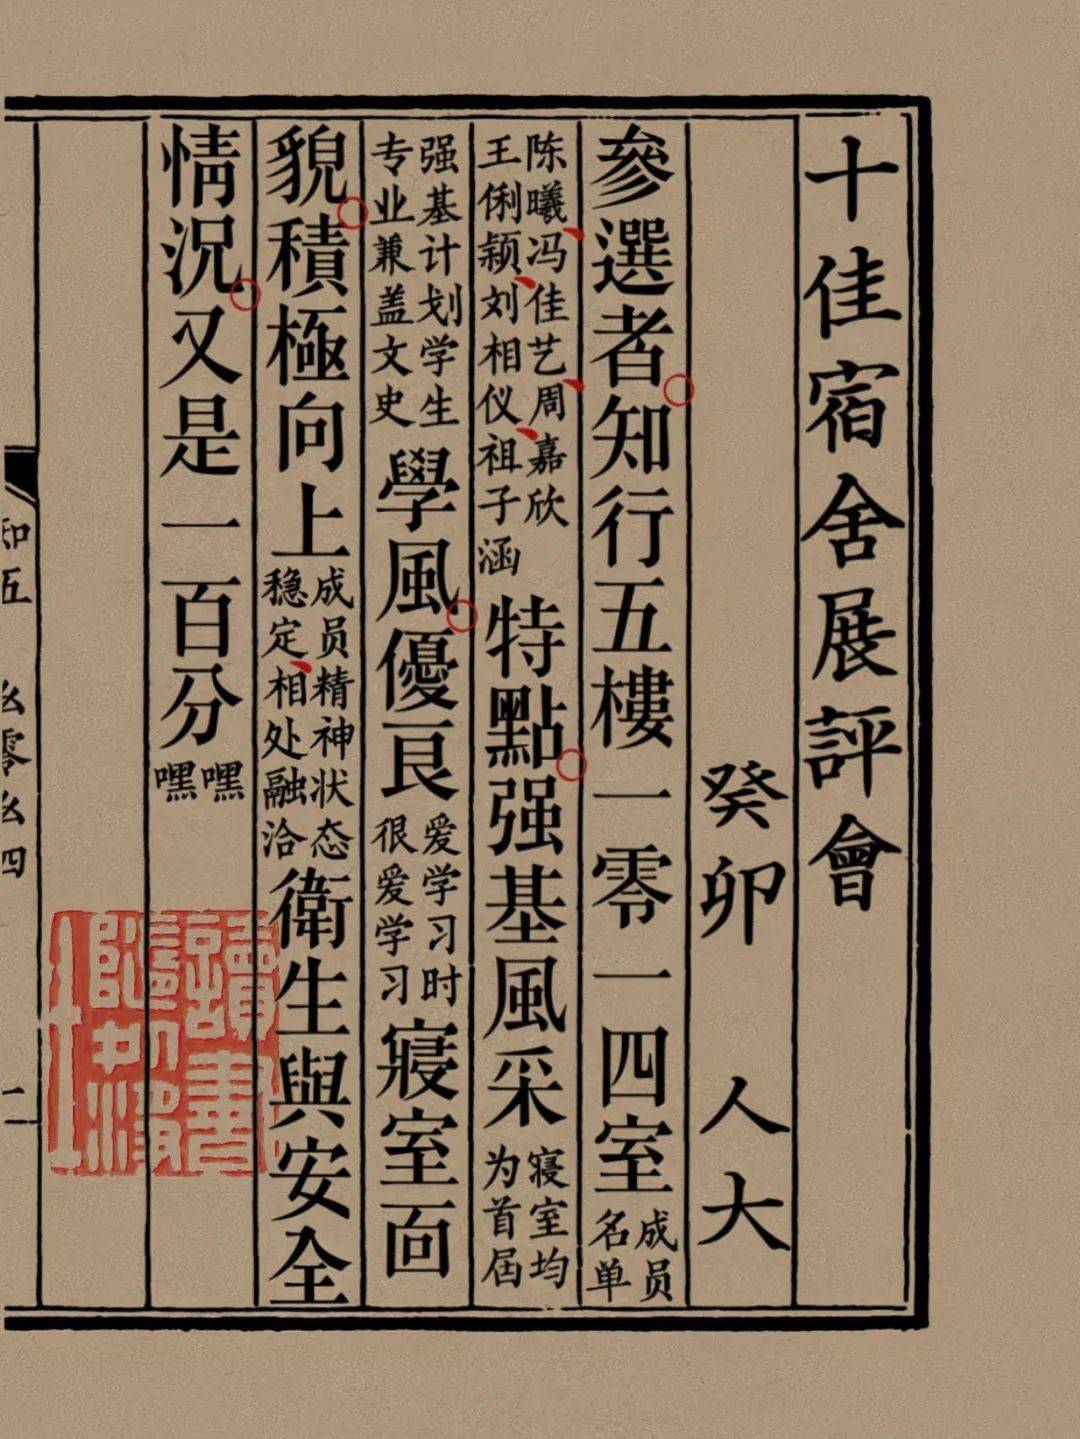 十佳宿舍展評會
癸卯 人大
參選者。知行五樓一零一四室成员名单
陈曦、冯佳艺、周嘉欣王俐颖、刘相仪、祖子涵特點。强基風采寢室均为首届
强基计划学生专业兼盖文史學風。優良爱学习时很爱学习寢室面
貌。積極向上成员精神状态稳定、相处融洽衛生與安全
情況。又是一百分嘿嘿
知五 幺零幺四 二